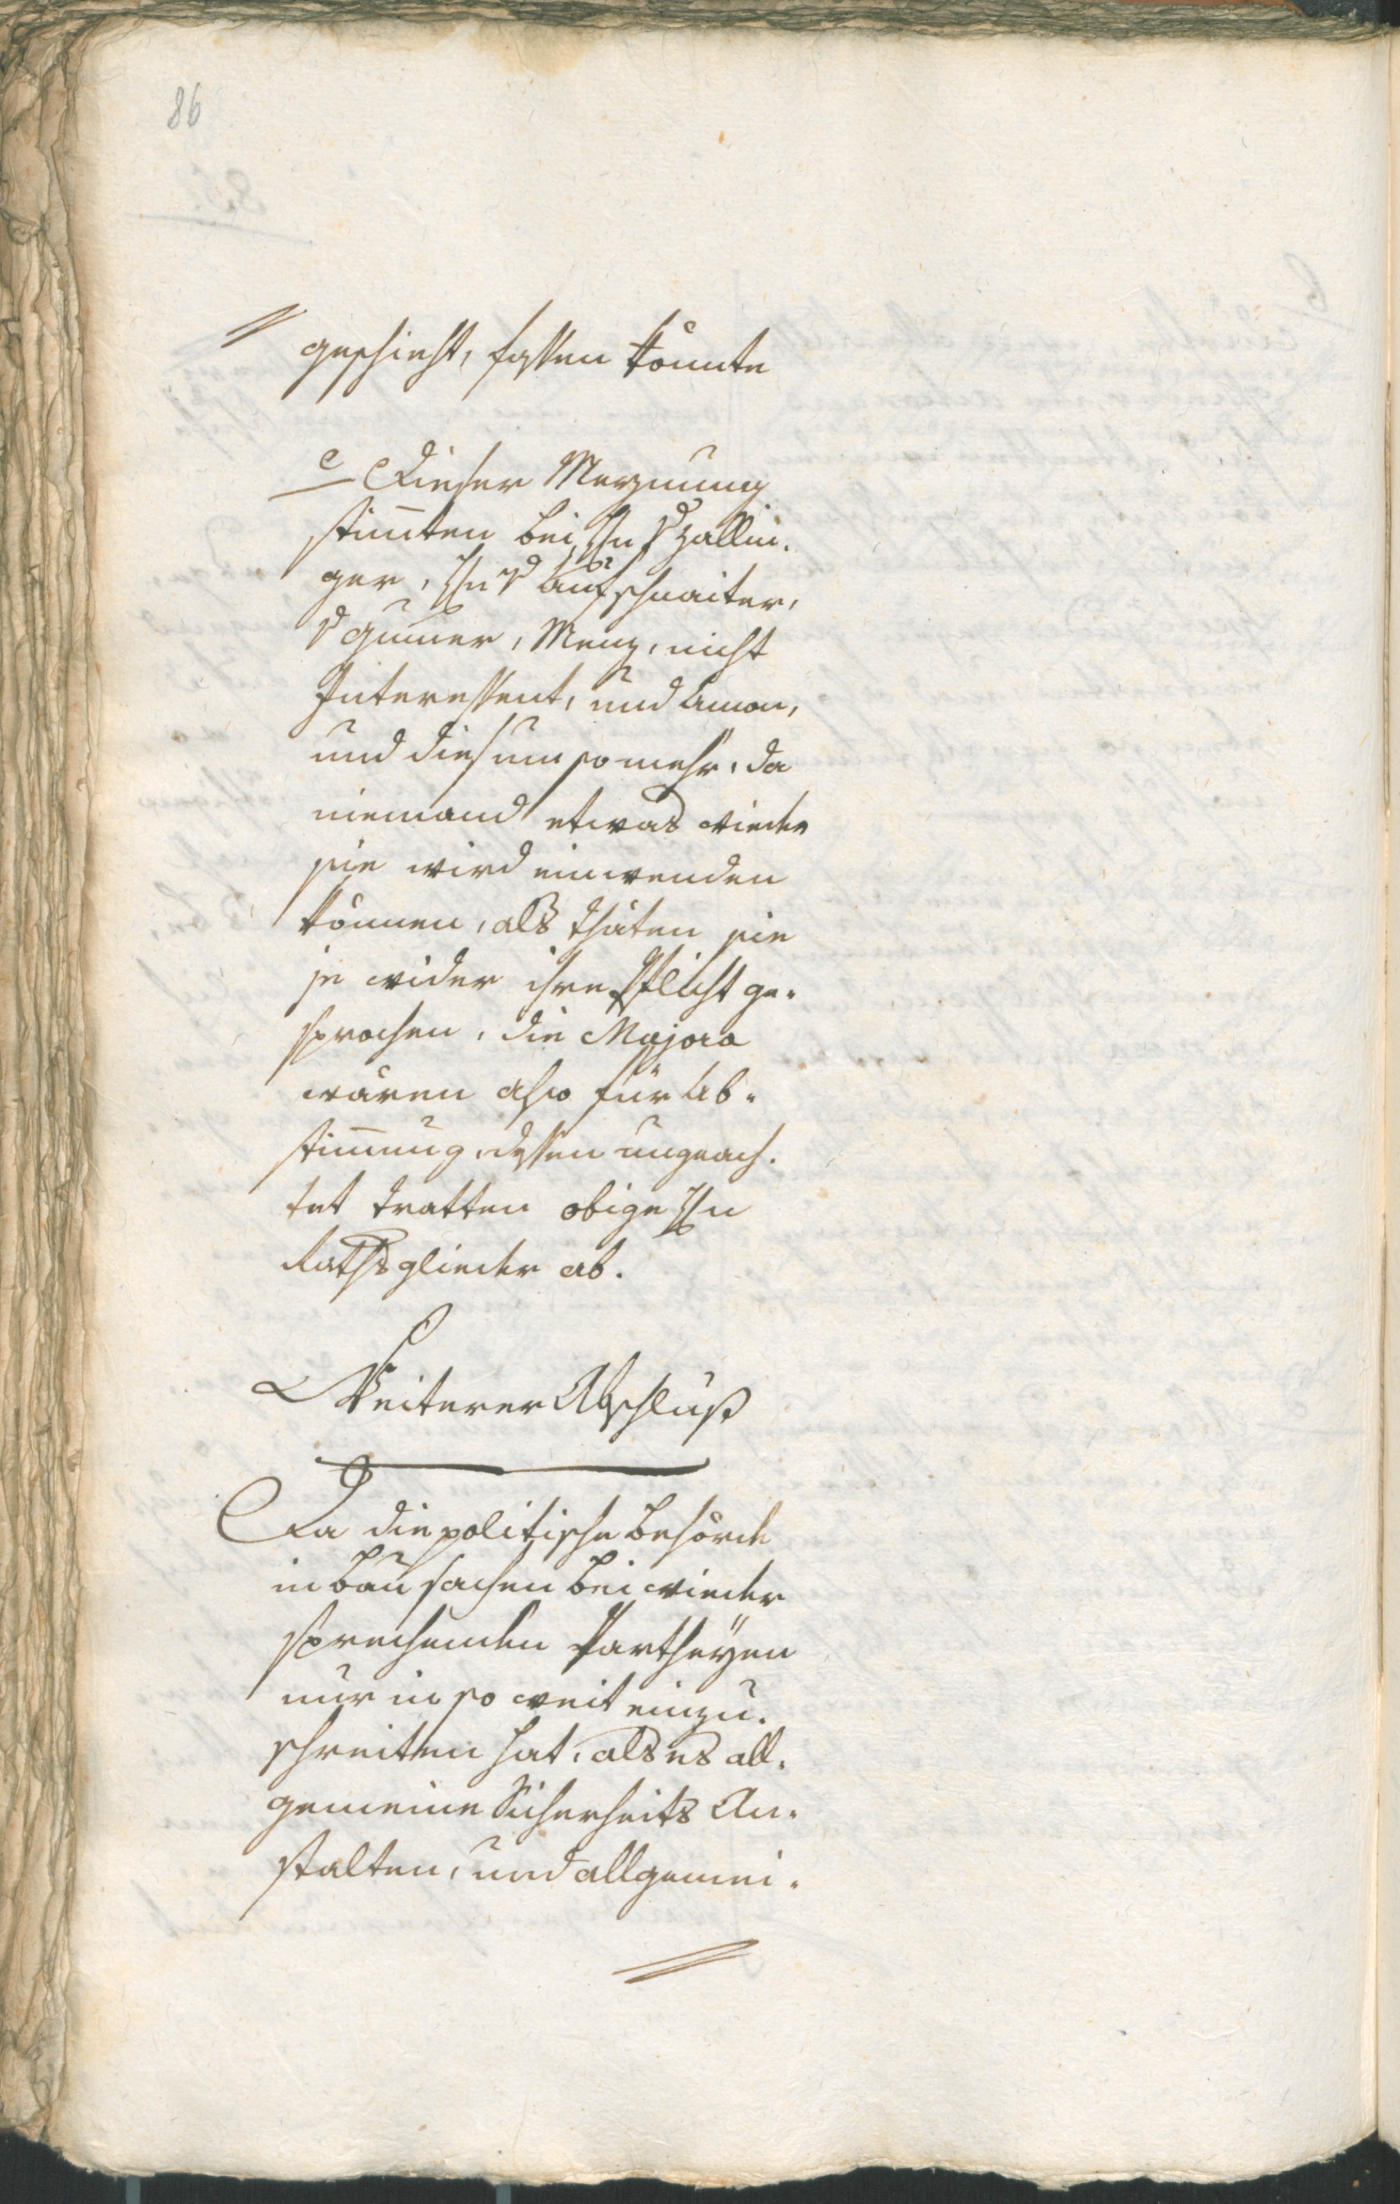 86
geschieht, fassen könnte
c Dieser Meynung
stim̅ten bei Hn v Zallin-
ger, Hn v Aufschnaiter,
v Gumer, Menz, nicht
Interessent, und Amon,
und dieß um so mehr, da
niemand etwas wieder
sie wird einwenden
können, als thäten sie
je wider ihre Pflicht ge-
sprochen, die Majora
wären also für Ab-
stim̅ung, dessen ungeach-
tet tratten obige Hn
Rathsglieder ab.
Weiterer Abschluß
Da die politische Behörde
in Bausachen bei wieder
sprechenden Partheyen
nur in so weit einzu-
schreiten hat, als es all-
gemeine Sicherheits An-
stalten, und allgemei-